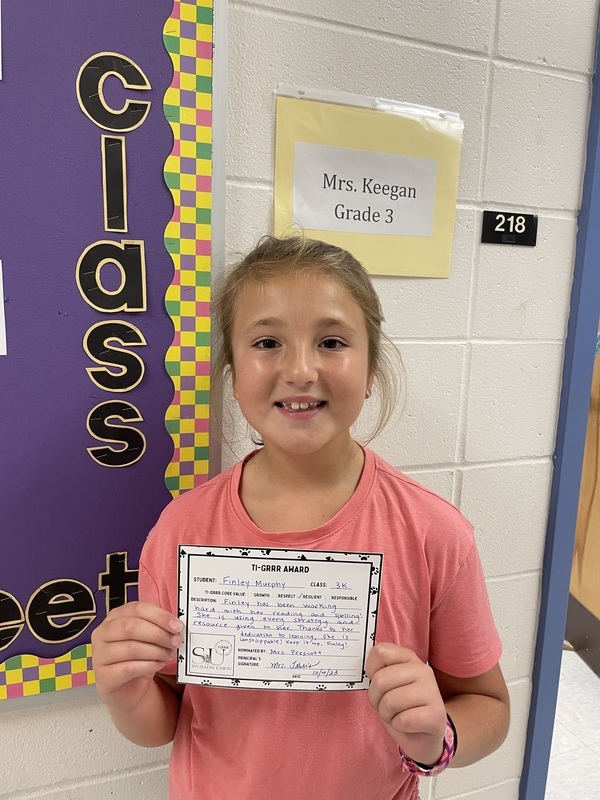 class
eet
Mrs. Keegan
Grade 3
218
TI-GRRR AWARD
STUDENT: Finley Murphy CLASS: 3K
TI-GRRR CORE VALUE: GROWTH RESPECT ✓RESILIENT RESPONSIBLE
DESCRIPTION: Finley has been working
hard with her reading and spelling!
She is using every strategy and
resource given to her. Thanks to her
dedication to learning, she is
unstoppable! Keep it up, Finley!
NOMINATED BY: Mrs. Prescott
PRINCIPAL'S
SIGNATURE Mrs.
DATE 10/4/23
SHALLOW UNION